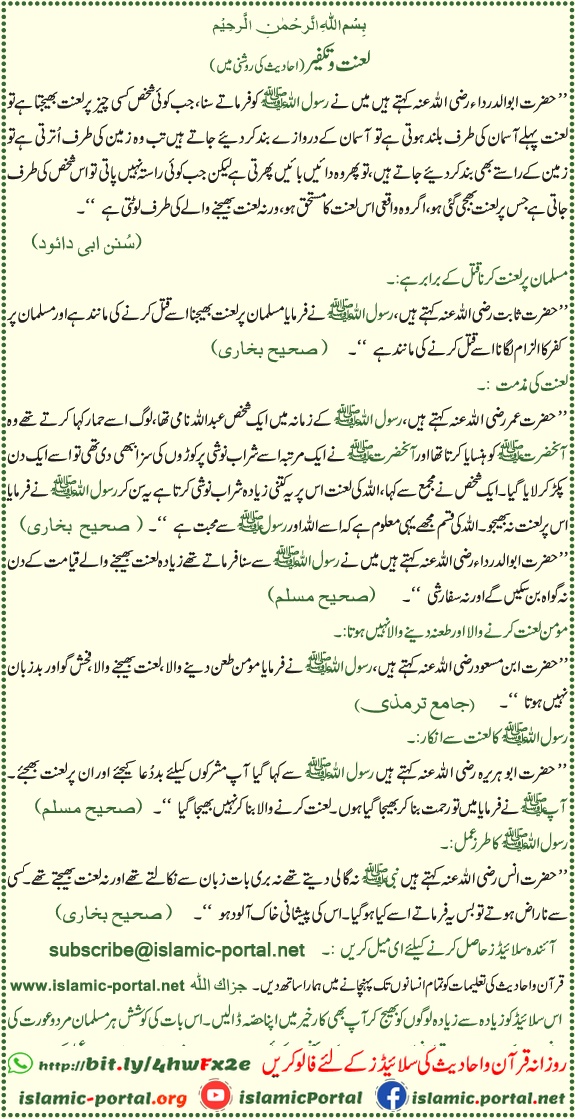 بِسْمِ اللهِ الرَّحْمٰنِ الرَّحِيْمِ
لعنت و تکفیر (احادیث کی روشنی میں)
’’حضرت ابوالدرداء رضی اللہ عنہ کہتے ہیں میں نے رسول اللہ ﷺ کو فرماتے سنا، جب کوئی شخص کسی چیز پر لعنت بھیجتا ہے تو
لعنت پہلے آسمان کی طرف بلند ہوتی ہے تو آسمان کے دروازے بند کر دیئے جاتے ہیں تب وہ زمین کی طرف اُترتی ہے تو
زمین کے راستے بھی بند کر دیئے جاتے ہیں، تو پھر وہ دائیں بائیں پھرتی ہے لیکن جب کوئی راستہ نہیں پاتی تو اس شخص کی طرف
جاتی ہے جس پر لعنت بھیجی گئی ہو، اگر وہ واقعی اس لعنت کا مستحق ہو، ورنہ لعنت بھیجنے والے کی طرف لوٹتی ہے ‘‘۔
(سُنن ابی دائود)
مسلمان پر لعنت کرنا قتل کے برابر ہے:۔
’’حضرت ثابت رضی اللہ عنہ کہتے ہیں، رسول اللہ ﷺ نے فرمایا مسلمان پر لعنت بھیجنا اسے قتل کرنے کی مانند ہے اور مسلمان پر
کفر کا الزام لگانا اسے قتل کرنے کی مانند ہے ‘‘۔ (صحیح بخاری)
لعنت کی مذمت :۔
’’حضرت عمر رضی اللہ عنہ کہتے ہیں، رسول اللہ ﷺ کے زمانہ میں ایک شخص عبداللہ نامی تھا، لوگ اسے حمار کہا کرتے تھے وہ
آنحضرت ﷺ کو ہنسایا کرتا تھا اور آنحضرت ﷺ نے ایک مرتبہ اسے شراب نوشی پر کوڑوں کی سزا بھی دی تھی تو اسے ایک دن
پکڑ کر لایا گیا۔ ایک شخص نے مجمع سے کہا، اللہ کی لعنت اس پر یہ کتنی زیادہ شراب نوشی کرتا ہے یہ سن کر رسول اللہ ﷺ نے فرمایا
اس پر لعنت نہ بھیجو۔ اللہ کی قسم مجھے یہی معلوم ہے کہ اسے اللہ اور رسول ﷺ سے محبت ہے ‘‘۔ (صحیح بخاری)
’’حضرت ابوالدرداء رضی اللہ عنہ کہتے ہیں میں نے رسول اللہ ﷺ سے سنا فرماتے تھے زیادہ لعنت بھیجنے والے قیامت کے دن
نہ گواہ بن سکیں گے اور نہ سفارشی ‘‘۔ (صحیح مسلم)
مؤمن لعنت کرنے والا اور طعنہ دینے والا نہیں ہوتا:۔
’’حضرت ابن مسعود رضی اللہ عنہ کہتے ہیں، رسول اللہ ﷺ نے فرمایا مؤمن طعن دینے والا، لعنت بھیجنے والا، فحش گو اور بدزبان
نہیں ہوتا ‘‘۔ (جامع ترمذی)
رسول اللہ ﷺ کا لعنت سے انکار:۔
’’حضرت ابو ہریرہ رضی اللہ عنہ کہتے ہیں رسول اللہ ﷺ سے کہا گیا آپ مشرکوں کیلئے بددُعا کیجئے اور ان پر لعنت بھیجئے۔
آپ ﷺ نے فرمایا میں تو رحمت بنا کر بھیجا گیا ہوں۔ لعنت کرنے والا بنا کر نہیں بھیجا گیا ‘‘۔ (صحیح مسلم)
رسول اللہ ﷺ کا طرز عمل:۔
’’حضرت انس رضی اللہ عنہ کہتے ہیں نبی ﷺ نہ گالی دیتے تھے نہ بری بات زبان سے نکالتے تھے اور نہ لعنت بھیجتے تھے۔ کسی
سے ناراض ہوتے تو بس یہ فرماتے اسے کیا ہو گیا۔ اس کی پیشانی خاک آلود ہو ‘‘۔ (صحیح بخاری)
آئندہ سلائیڈز حاصل کرنے کیلئے ای میل کریں :۔ subscribe@islamic-portal.net
قرآن و احادیث کی تعلیمات کو تمام انسانوں تک پہنچانے میں ہمارا ساتھ دیں۔ جزاك الله www.islamic-portal.net
اس سلائیڈ کو زیادہ سے زیادہ لوگوں کو بھیج کر آپ بھی کار خیر میں اپنا حصہ ڈالیں۔ اس بات کی کوشش ہر مسلمان مرد و عورت کی
روزانہ قرآن و احادیث کی سلائیڈز کے لئے فالو کریں http://bit.ly/4hwFx2e
islamic-portal.org islamicPortal islamic.portal